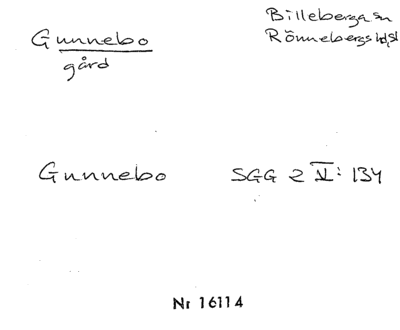 Gunnebo
gård
Billeberga sn
Rönnebergs hd, sl
Gunnebo SGG 2 V: 134
Nr 16114